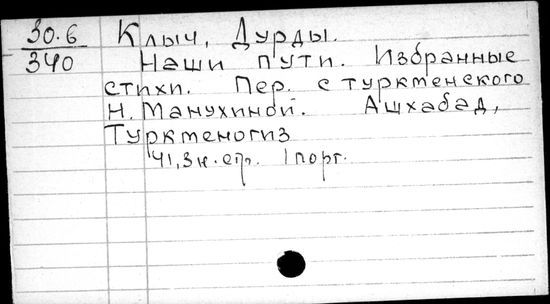 30.6 Клыч, Дурды.
340 Наши пути. Избранные
стихи. Пер. с туркменского
Н. Манухиной. Ашхабад,
Туркменогиз
'41, 3 н. стр. 1 порт.